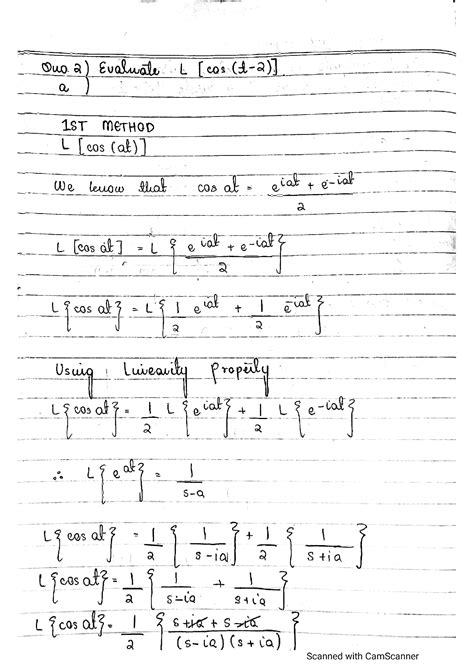 Que 2) Evaluate L [cos (t-2)]
a )
1ST METHOD
L [cos (at)]
We know that cos at = e^iat + e^-iat / 2
L [cos at] = L { e^iat + e^-iat / 2 }
L { cos at } = L { 1/2 e^iat + 1/2 e^-iat }
Using Linearity Property
L { cos at } = 1/2 L { e^iat } + 1/2 L { e^-iat }
∴ L { e^at } = 1 / s-a
L { cos at } = 1/2 { 1 / s-ia } + 1/2 { 1 / s+ia }
L { cos at } = 1/2 { 1 / s-ia + 1 / s+ia }
L { cos at } = 1/2 { s+ia + s-ia / (s-ia) (s+ia) }
Scanned with CamScanner